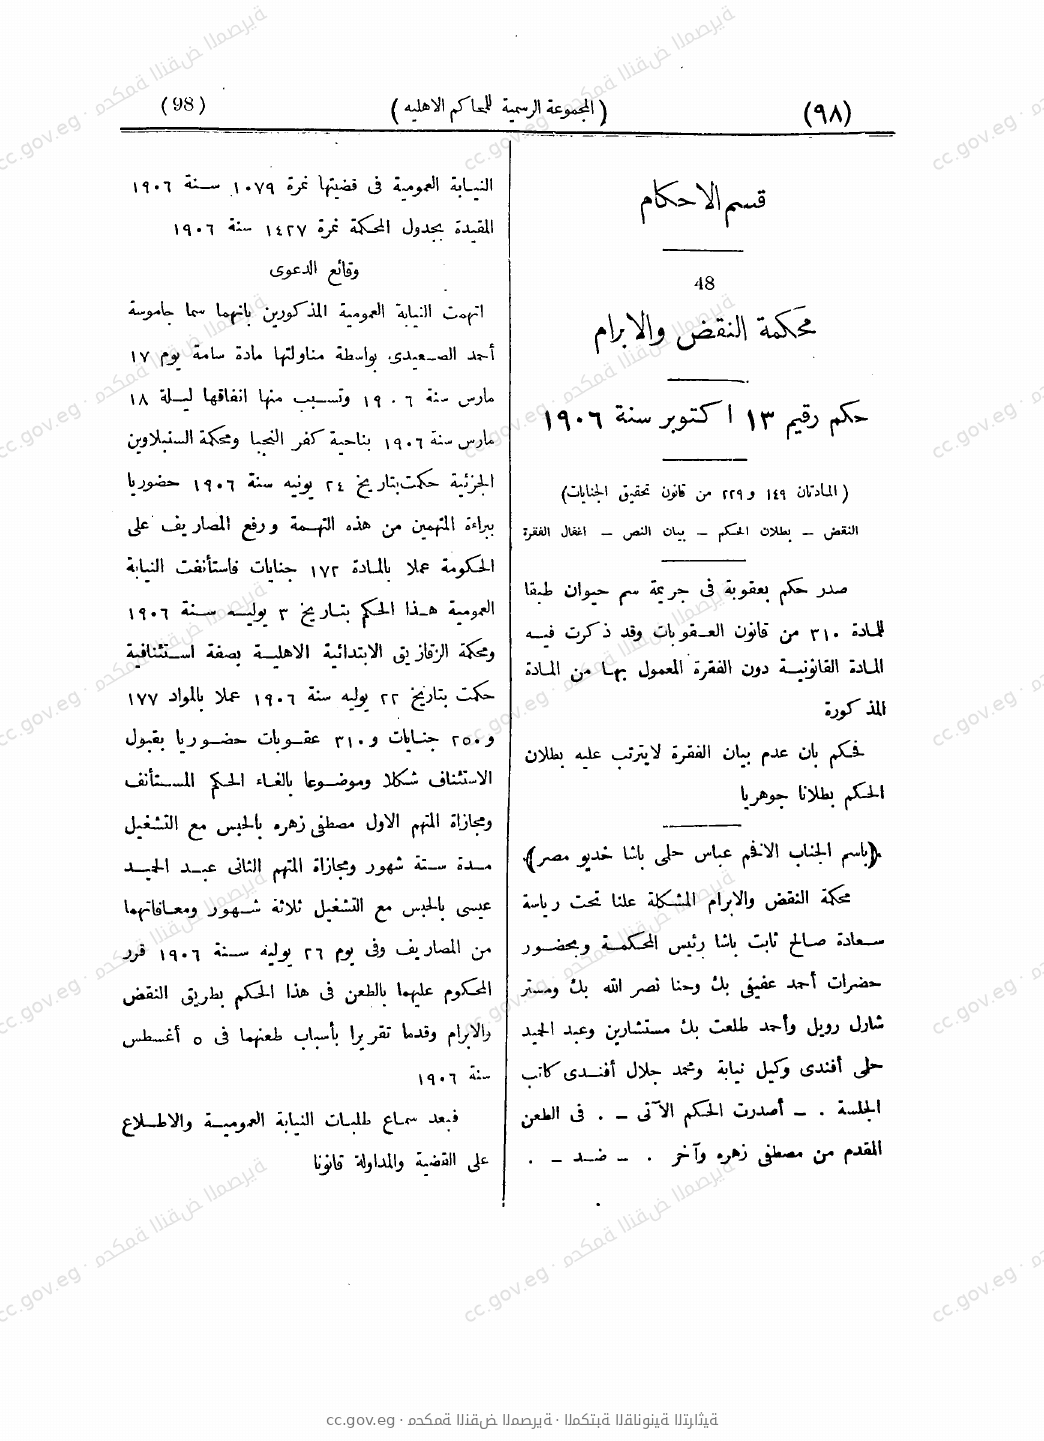 (٩٨)
(المجموعة الرسمية للمحاكم الاهليه)
(98)
قسم الاحكام
48
محكمة النقض والابرام
حكم رقيم ١٣ اكتوبر سنة ١٩٠٦
(المادتان ١٤٩ و٢٢٩ من قانون تحقيق الجنايات)
النقض — بطلان الحكم — بيان النص — اغفال الفقرة
صدر حكم بعقوبة فى جريمة سم حيوان طبقا
للمادة ٣١٠ من قانون العقوبات وقد ذكرت فيه
المادة القانونية دون الفقرة المعمول بها من المادة
المذكورة
فحكم بان عدم بيان الفقرة لايترتب عليه بطلان
الحكم بطلانا جوهريا
(باسم الجناب الافخم عباس حلمى باشا خديو مصر)
محكمة النقض والابرام المشكلة علنا تحت رياسة
سعادة صالح ثابت باشا رئيس المحكمة وبحضور
حضرات أحمد عفيفى بك وحنا نصر الله بك ومستر
شارل رويل وأحمد طلعت بك مستشارين وعبد الحميد
حلمى أفندى وكيل نيابة ومحمد جلال أفندى كاتب
الجلسة . — أصدرت الحكم الآتى — . فى الطعن
المقدم من مصطفى زهره وآخر . — ضد — .
النيابة العمومية فى قضيتها نمرة ١٠٧٩ سنة ١٩٠٦
المقيدة بجدول المحكمة نمرة ١٤٢٧ سنة ١٩٠٦
وقائع الدعوى
اتهمت النيابة العمومية المذكورين بانهما سما جاموسة
أحمد الصعيدى بواسطة مناولتها مادة سامة يوم ١٧
مارس سنة ١٩٠٦ وتسبب منها انفاقها ليلة ١٨
مارس سنة ١٩٠٦ بناحية كفر النجبا ومحكمة السنبلاوين
الجزئية حكمت بتاريخ ٢٤ يونيه سنة ١٩٠٦ حضوريا
ببراءة المتهمين من هذه التهمة ورفع المصاريف على
الحكومة عملا بالمادة ١٧٢ جنايات فاستأنفت النيابة
العمومية هذا الحكم بتاريخ ٣ يوليه سنة ١٩٠٦
ومحكمة الزقازيق الابتدائية الاهلية بصفة استئنافية
حكمت بتاريخ ٢٢ يوليه سنة ١٩٠٦ عملا بالمواد ١٧٧
و٢٥٠ جنايات و٣١٠ عقوبات حضوريا بقبول
الاستئناف شكلا وموضوعا بالغاء الحكم المستأنف
ومجازاة المتهم الاول مصطفى زهره بالحبس مع التشغيل
مدة ستة شهور ومجازاة المتهم الثانى عبد الحميد
عيسى بالحبس مع التشغيل ثلاثة شهور ومعافاتهما
من المصاريف وفى يوم ٢٦ يوليه سنة ١٩٠٦ قرر
المحكوم عليهما بالطعن فى هذا الحكم بطريق النقض
والابرام وقدما تقريرا بأسباب طعنهما فى ٥ أغسطس
سنة ١٩٠٦
فبعد سماع طلبات النيابة العمومية والاطلاع
على القضية والمداولة قانونا
cc.gov.eg · محكمة النقض المصرية · المكتبة القانونية التراثية